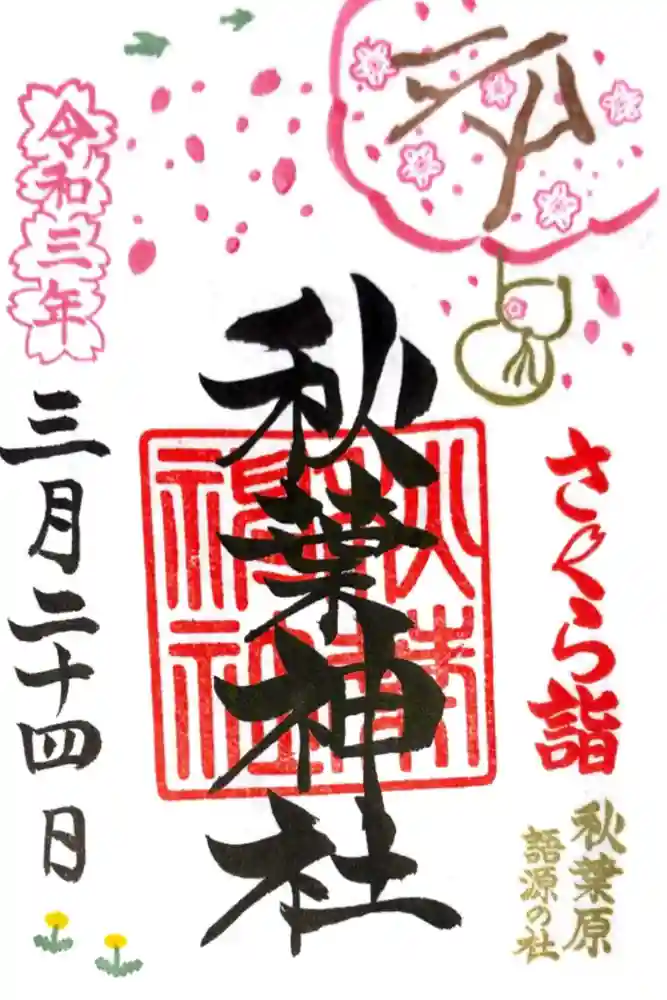 さくら詣
秋葉原
語源の社
秋葉神社
秋葉神社
令和三年
三月二十四日